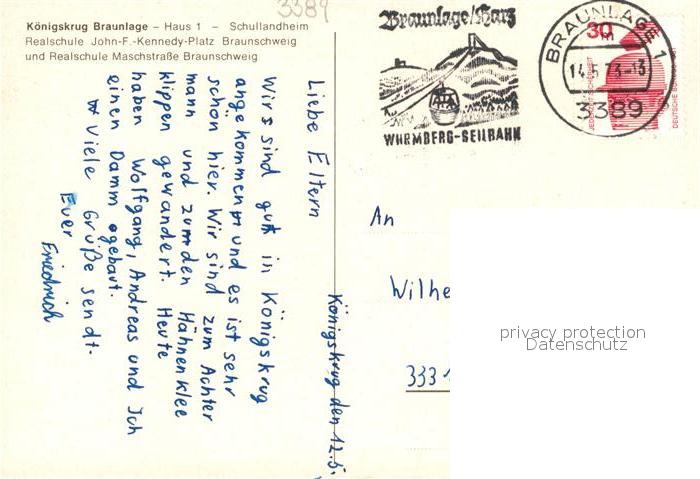 3389
Königskrug Braunlage – Haus 1 – Schullandheim
Realschule John-F.-Kennedy-Platz Braunschweig
und Realschule Maschstraße Braunschweig
Braunlage/Harz
WURMBERG-SEILBAHN
BRAUNLAGE 1
14.5.73-13
3389
30
DEUTSCHE BUNDESPOST
JEDERZEIT SICHERHEIT
Königskrug den 12.5.
Liebe Eltern
Wir sind gut in Königskrug
angekommen und es ist sehr
schön hier. Wir sind zum Achter
mann und zu den Hähnenklee
klippen gewandert. Heute
haben Wolfgang, Andreas und Ich
einen Damm gebaut.
Viele Grüße sendt.
Euer
Friedrich
An
Wilhe
333
privacy protection
Datenschutz